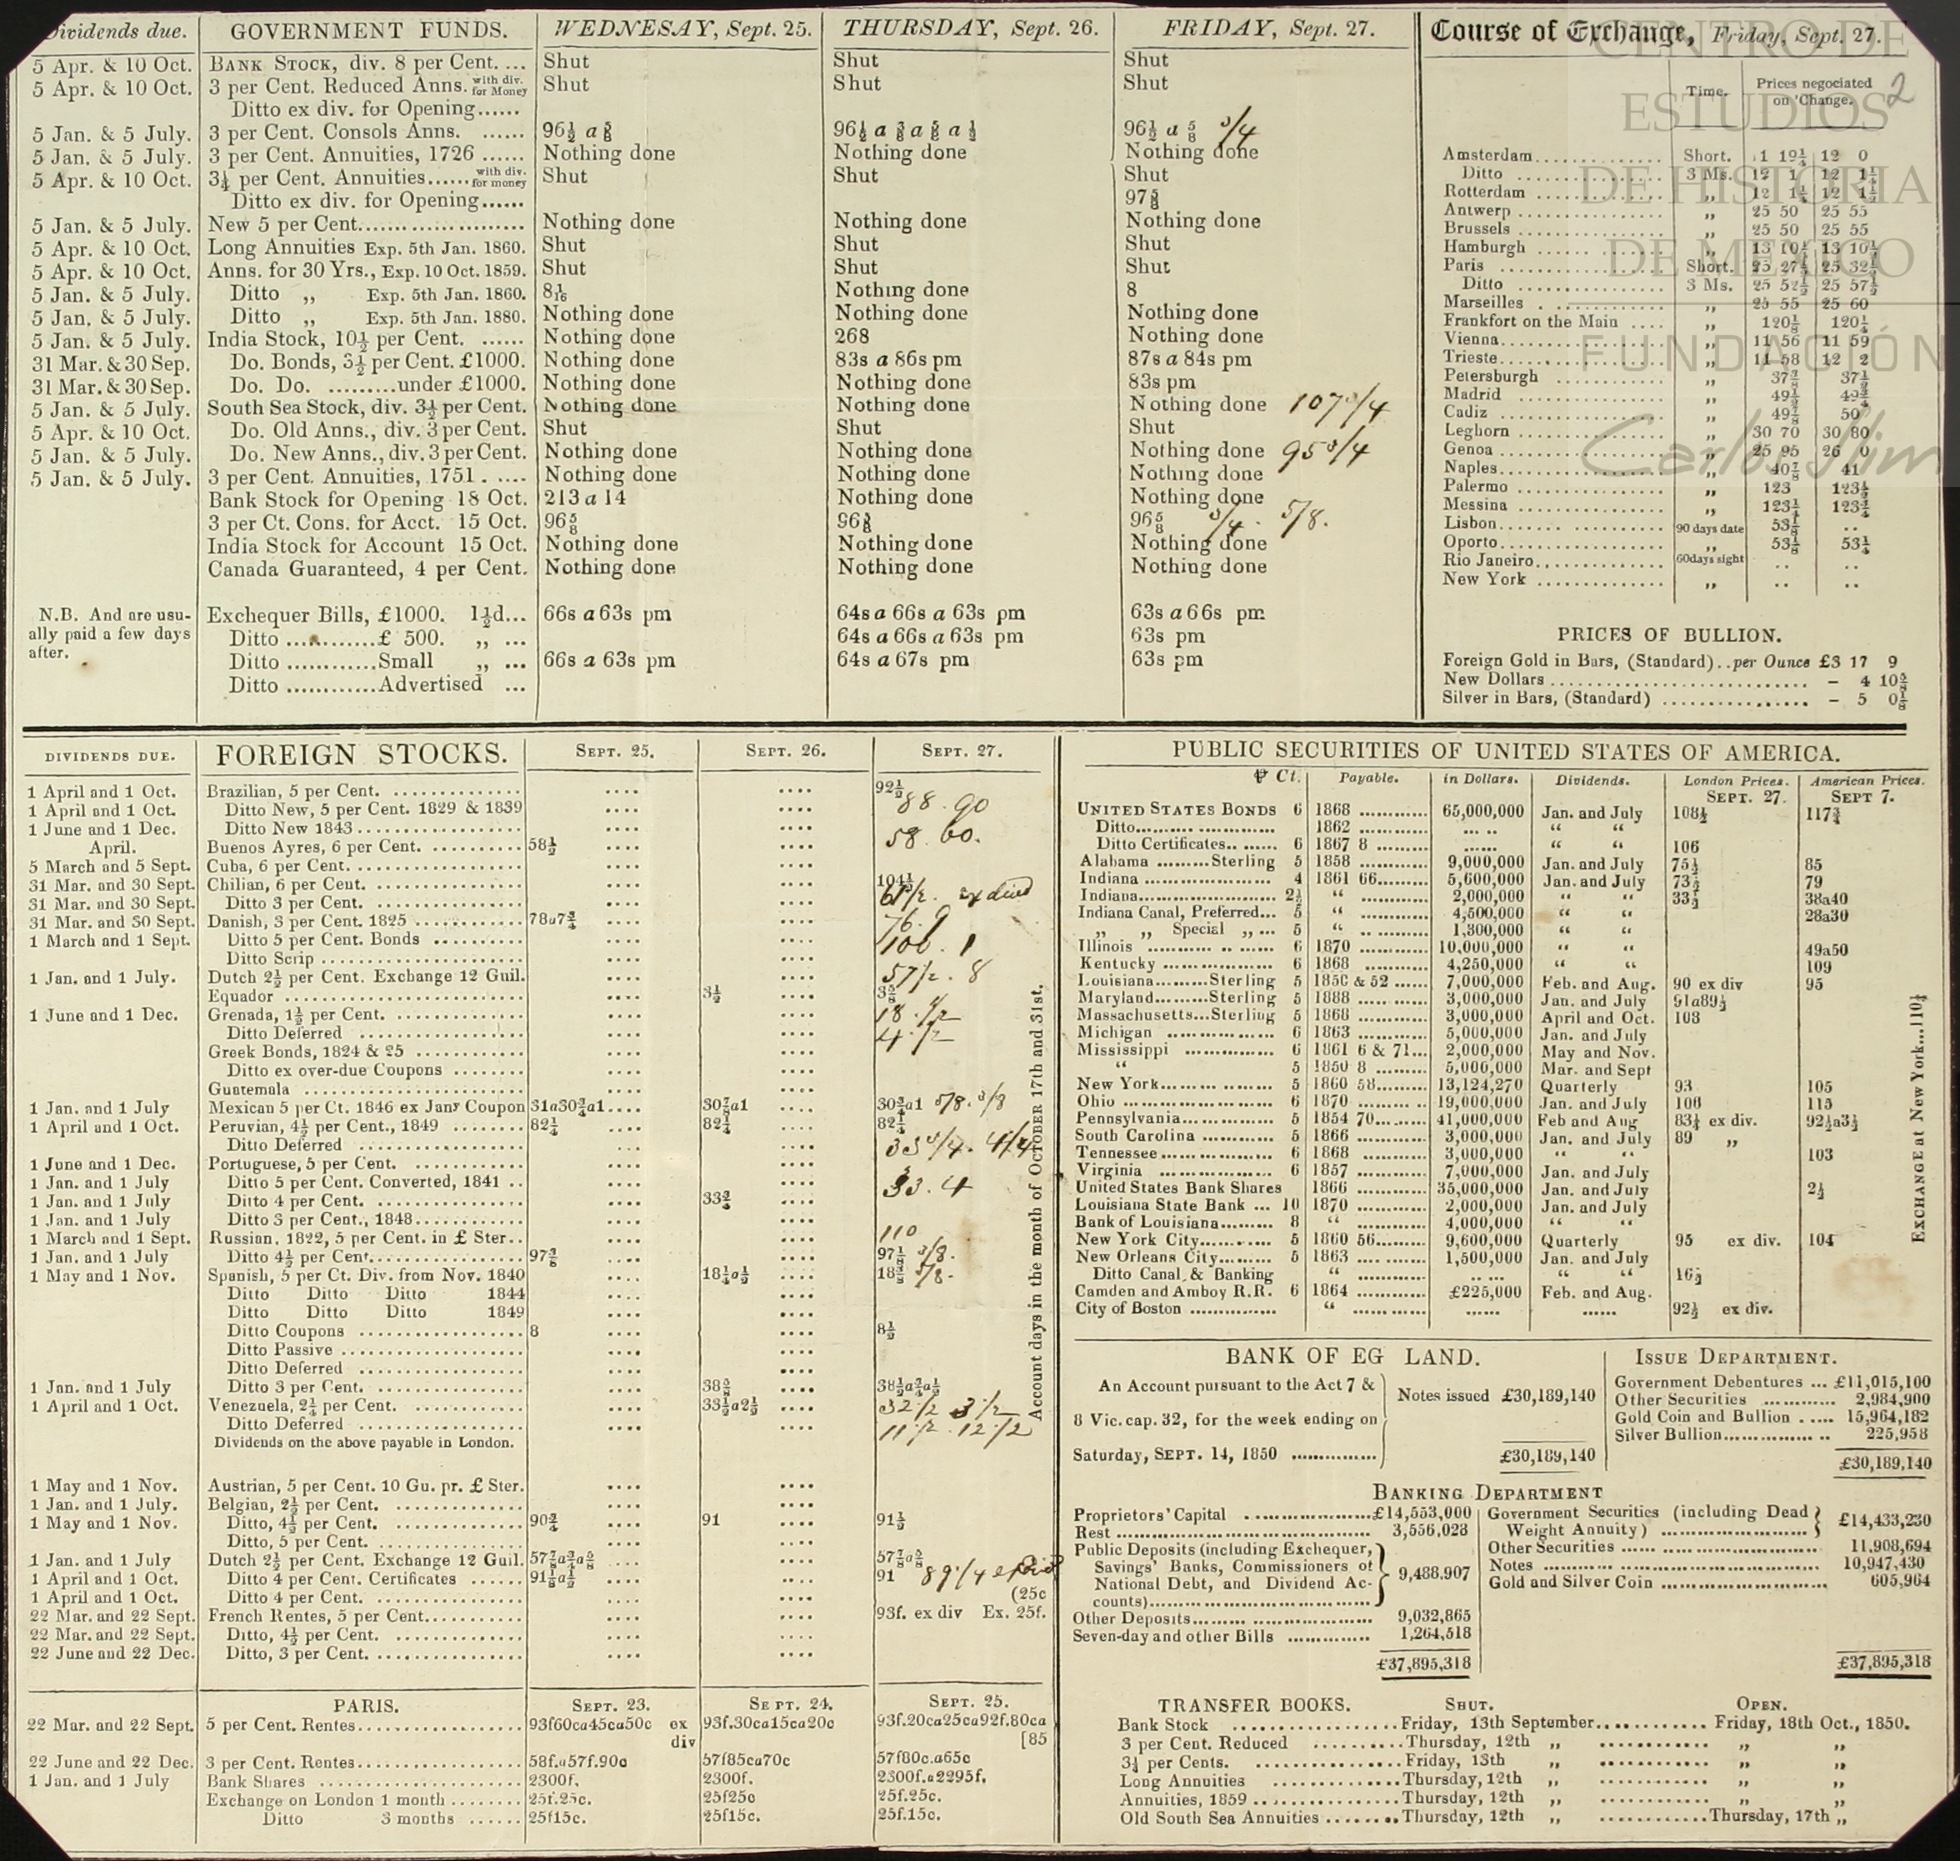 Dividends due. GOVERNMENT FUNDS. WEDNESAY, Sept. 25. THURSDAY, Sept. 26. FRIDAY, Sept. 27.
5 Apr. & 10 Oct. BANK STOCK, div. 8 per Cent. ... Shut Shut Shut
5 Apr. & 10 Oct. 3 per Cent. Reduced Anns. with div. for Money Shut Shut Shut
Ditto ex div. for Opening......
5 Jan. & 5 July. 3 per Cent. Consols Anns. ...... 96½ a ⅝ 96½ a ⅜ a ⅝ a ½ 96½ a ⅝ 3/4
5 Jan. & 5 July. 3 per Cent. Annuities, 1726 ...... Nothing done Nothing done Nothing done
5 Apr. & 10 Oct. 3¼ per Cent. Annuities...... with div. for money Shut Shut Shut
Ditto ex div. for Opening...... 97⅝
5 Jan. & 5 July. New 5 per Cent........................ Nothing done Nothing done Nothing done
5 Apr. & 10 Oct. Long Annuities Exp. 5th Jan. 1860. Shut Shut Shut
5 Apr. & 10 Oct. Anns. for 30 Yrs., Exp. 10 Oct. 1859. Shut Shut Shut
5 Jan. & 5 July. Ditto „ Exp. 5th Jan. 1860. 8 1/16 Nothing done 8
5 Jan. & 5 July. Ditto „ Exp. 5th Jan. 1880. Nothing done Nothing done Nothing done
5 Jan. & 5 July. India Stock, 10½ per Cent. ...... Nothing done 268 Nothing done
31 Mar. & 30 Sep. Do. Bonds, 3½ per Cent. £1000. Nothing done 83s a 86s pm 87s a 84s pm
31 Mar. & 30 Sep. Do. Do. .........under £1000. Nothing done Nothing done 83s pm
5 Jan. & 5 July. South Sea Stock, div. 3½ per Cent. Nothing done Nothing done Nothing done 107 3/4
5 Apr. & 10 Oct. Do. Old Anns., div. 3 per Cent. Shut Shut Shut
5 Jan. & 5 July. Do. New Anns., div. 3 per Cent. Nothing done Nothing done Nothing done 95 3/4
5 Jan. & 5 July. 3 per Cent. Annuities, 1751 ..... Nothing done Nothing done Nothing done
Bank Stock for Opening 18 Oct. 213 a 14 Nothing done Nothing done
3 per Ct. Cons. for Acct. 15 Oct. 96⅝ 96⅝ 96⅝ 3/4 . 5/8.
India Stock for Account 15 Oct. Nothing done Nothing done Nothing done
Canada Guaranteed, 4 per Cent. Nothing done Nothing done Nothing done
N.B. And are usually paid a few days after.
Exchequer Bills, £1000. 1½d... 66s a 63s pm 64s a 66s a 63s pm 63s a 66s pm
Ditto ............£ 500. „ ... 64s a 66s a 63s pm 63s pm
Ditto ............Small „ ... 66s a 63s pm 64s a 67s pm 63s pm
Ditto ............Advertised ...
Course of Exchange, Friday, Sept. 27.
2
Time. Prices negociated on 'Change.
Amsterdam.............. Short. 19¼ 12 0
Ditto .................. 3 Ms. 12 1 12 1½
Rotterdam ............... „ 12 1¼ 12 1½
Antwerp .................. „ 25 50 25 55
Brussels .................. „ 25 50 25 55
Hamburgh ............... „ 13 10¼ 13 10½
Paris ..................... Short. 25 27½ 25 32½
Ditto .................. 3 Ms. 25 52½ 25 57½
Marseilles . ............... „ 25 55 25 60
Frankfort on the Main .... „ 120⅛ 120¼
Vienna..................... „ 11 56 11 59
Trieste..................... „ 11 58 12 2
Petersburgh ............... „ 37⅜ 37½
Madrid .................. „ 49½ 49¾
Cadiz ..................... „ 49⅞ 50
Leghorn .................. „ 30 70 30 80
Genoa ..................... „ 25 95 26 0
Naples..................... „ 40⅞ 41
Palermo .................. „ 123 123½
Messina .................. „ 123¼ 123¾
Lisbon..................... 90 days date 53⅛ ..
Oporto..................... „ 53⅛ 53¼
Rio Janeiro............... 60days sight .. ..
New York ............... „ .. ..
PRICES OF BULLION.
Foreign Gold in Bars, (Standard)..per Ounce £3 17 9
New Dollars .............................. – 4 10⅝
Silver in Bars, (Standard) .................. – 5 0⅛
DIVIDENDS DUE. FOREIGN STOCKS. SEPT. 25. SEPT. 26. SEPT. 27.
1 April and 1 Oct. Brazilian, 5 per Cent. ............... 92½
1 April and 1 Oct. Ditto New, 5 per Cent. 1829 & 1839 88 . 90
1 June and 1 Dec. Ditto New 1843..................
April. Buenos Ayres, 6 per Cent. .......... 58½ 58 . 60.
5 March and 5 Sept. Cuba, 6 per Cent...................
31 Mar. and 30 Sept. Chilian, 6 per Cent. ............... 104½
31 Mar. and 30 Sept. Ditto 3 per Cent. ............... ex divd
31 Mar. and 30 Sept. Danish, 3 per Cent. 1825 ............ 78a7¾ 76.
1 March and 1 Sept. Ditto 5 per Cent. Bonds .......... 100 . 1
Ditto Scrip .....................
1 Jan. and 1 July. Dutch 2½ per Cent. Exchange 12 Guil. 57 1/2 . 8
Equador .......................... 3½ 3⅝
1 June and 1 Dec. Grenada, 1½ per Cent. ............... 18 . 1/2
Ditto Deferred .................. 4 . 1/2
Greek Bonds, 1824 & 25 ............
Ditto ex over-due Coupons ........
Guatemala ........................
1 Jan. and 1 July Mexican 5 per Ct. 1846 ex Jany Coupon 31a30¾a1.... 30⅞a1 .... 30¾a1 5/8 . 3/8
1 April and 1 Oct. Peruvian, 4½ per Cent., 1849 ........ 82¼ 82¼ 82¼
Ditto Deferred .................. 33 3/4 .
1 June and 1 Dec. Portuguese, 5 per Cent. ............
1 Jan. and 1 July Ditto 5 per Cent. Converted, 1841 .. 33 . 4
1 Jan. and 1 July Ditto 4 per Cent. ............... 33¾
1 Jan. and 1 July Ditto 3 per Cent., 1848............
1 March and 1 Sept. Russian, 1822, 5 per Cent. in £ Ster.. 110
1 Jan. and 1 July Ditto 4½ per Cent................. 97⅜ 97⅛ 3/8.
1 May and 1 Nov. Spanish, 5 per Ct. Div. from Nov. 1840 18¼a½ 18⅜ 5/8.
Ditto Ditto Ditto 1844
Ditto Ditto Ditto 1849
Ditto Coupons .................. 8 8½
Ditto Passive ....................
Ditto Deferred ..................
1 Jan. and 1 July Ditto 3 per Cent. ............... 38⅝ 38½a¾a½
1 April and 1 Oct. Venezuela, 2¼ per Cent. ............ 33½a2½ 32 1/2 3 1/2
Ditto Deferred .................. 11 1/2 . 12 1/2
Dividends on the above payable in London.
Account days in the month of OCTOBER 17th and 31st.
1 May and 1 Nov. Austrian, 5 per Cent. 10 Gu. pr. £ Ster.
1 Jan. and 1 July. Belgian, 2½ per Cent. ..............
1 May and 1 Nov. Ditto, 4½ per Cent. .............. 90¾ 91 91½
Ditto, 5 per Cent. ..............
1 Jan. and 1 July Dutch 2½ per Cent. Exchange 12 Guil. 57⅞a¾a⅝ 57⅞a⅝
1 April and 1 Oct. Ditto 4 per Cent. Certificates ...... 91⅛a½ 91 89 1/4
1 April and 1 Oct. Ditto 4 per Cent. ............... (25c
22 Mar. and 22 Sept. French Rentes, 5 per Cent............ 93f. ex div Ex. 25f.
22 Mar. and 22 Sept. Ditto, 4½ per Cent. ..............
22 June and 22 Dec. Ditto, 3 per Cent. ................
PARIS. SEPT. 23. SEPT. 24. SEPT. 25.
22 Mar. and 22 Sept. 5 per Cent. Rentes.................. 93f60ca45ca50c ex div 93f.30ca15ca20c 93f.20ca25ca92f.80ca [85
22 June and 22 Dec. 3 per Cent. Rentes.................. 58f.a57f.90c 57f85ca70c 57f80c.a65c
1 Jan. and 1 July Bank Shares ...................... 2300f. 2300f. 2300f.a2295f.
Exchange on London 1 month ........ 25f.25c. 25f25c 25f.25c.
Ditto 3 months ...... 25f15c. 25f15c. 25f.15c.
PUBLIC SECURITIES OF UNITED STATES OF AMERICA.
℘ Ct. Payable. in Dollars. Dividends. London Prices. SEPT. 27. American Prices. SEPT 7.
UNITED STATES BONDS 6 1868 ............ 65,000,000 Jan. and July 108½ 117¾
Ditto......... ............... 1862 ............ ... .. “ “
Ditto Certificates.. ....... 6 1867 8 ......... ...... “ “ 106
Alabama .........Sterling 5 1858 ............ 9,000,000 Jan. and July 75½ 85
Indiana ..................... 4 1861 66......... 5,600,000 Jan. and July 73½ 79
Indiana..................... 2½ “ ............ 2,000,000 “ “ 33½ 38a40
Indiana Canal, Preferred... 5 “ ............ 4,500,000 “ “ 28a30
„ „ Special „ ... 5 “ ............ 1,300,000 “ “
Illinois ........... .. ...... 6 1870 ............ 10,000,000 “ “ 49a50
Kentucky .................. 6 1868 ............ 4,250,000 “ “ 109
Louisiana.........Sterling 5 1850 & 52 ...... 7,000,000 Feb. and Aug. 90 ex div 95
Maryland.........Sterling 5 1888 ............ 3,000,000 Jan. and July 91a89½
Massachusetts...Sterling 5 1868 ............ 3,000,000 April and Oct. 108
Michigan .................. 6 1863 ............ 5,000,000 Jan. and July
Mississippi ............... 6 1861 6 & 71... 2,000,000 May and Nov.
“ 5 1850 8 ......... 5,000,000 Mar. and Sept
New York.................. 5 1860 58......... 13,124,270 Quarterly 93 105
Ohio ........................ 6 1870 ............ 19,000,000 Jan. and July 106 115
Pennsylvania............... 5 1854 70......... 41,000,000 Feb and Aug 83½ ex div. 92½a3½
South Carolina ............ 5 1866 ............ 3,000,000 Jan. and July 89 „
Tennessee.................. 6 1868 ............ 3,000,000 “ “ 103
Virginia .................. 6 1857 ............ 7,000,000 Jan. and July
United States Bank Shares 1866 ............ 35,000,000 Jan. and July 2½
Louisiana State Bank ... 10 1870 ............ 2,000,000 Jan. and July
Bank of Louisiana......... 8 “ ............ 4,000,000 “ “
New York City............ 5 1860 56......... 9,600,000 Quarterly 95 ex div. 104
New Orleans City......... 5 1863 ............ 1,500,000 Jan. and July
Ditto Canal & Banking “ ............ ... ... “ “ 16½
Camden and Amboy R.R. 6 1864 ............ £225,000 Feb. and Aug.
City of Boston ............... “ ............ ...... ...... 92½ ex div.
EXCHANGE at New York...110¼
BANK OF EG LAND.
An Account pursuant to the Act 7 &
8 Vic. cap. 32, for the week ending on
Saturday, SEPT. 14, 1850 ...............
Notes issued £30,189,140
£30,189,140
ISSUE DEPARTMENT.
Government Debentures ... £11,015,100
Other Securities ............ 2,984,900
Gold Coin and Bullion ...... 15,964,182
Silver Bullion................. 225,958
£30,189,140
BANKING DEPARTMENT
Proprietors' Capital ....................£14,553,000
Rest .................................... 3,556,028
Public Deposits (including Exchequer,
Savings' Banks, Commissioners of
National Debt, and Dividend Ac-
counts).............................. 9,488,907
Other Deposits........................ 9,032,865
Seven-day and other Bills ............... 1,264,518
£37,895,318
Government Securities (including Dead
Weight Annuity) ..................... £14,433,230
Other Securities ........................ 11,908,694
Notes .................................... 10,947,430
Gold and Silver Coin ..................... 605,964
£37,895,318
TRANSFER BOOKS. SHUT. OPEN.
Bank Stock .....................Friday, 13th September............ Friday, 18th Oct., 1850.
3 per Cent. Reduced ..........Thursday, 12th „ ............ „ „
3¼ per Cents. ..................Friday, 13th „ ............ „ „
Long Annuities ...............Thursday, 12th „ ............ „ „
Annuities, 1859 ..................Thursday, 12th „ ............ „ „
Old South Sea Annuities ........Thursday, 12th „ ............Thursday, 17th „
CENTRO DE
ESTUDIOS
DE HISTORIA
DE MÉXICO
FUNDACIÓN
Carlos Slim